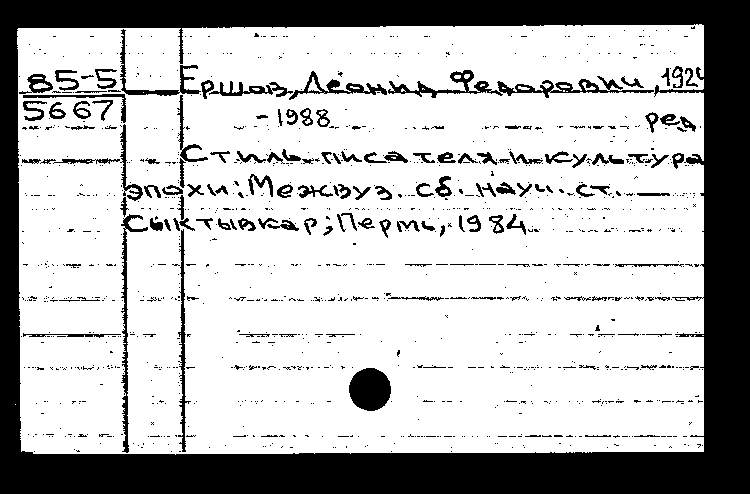 85-5 Ершов, Леонид Федорович, 1924
5667 -1988 ред
Стиль писателя и культура
эпохи: Межвуз. сб. науч. ст. —
Сыктывкар; Пермь, 1984.